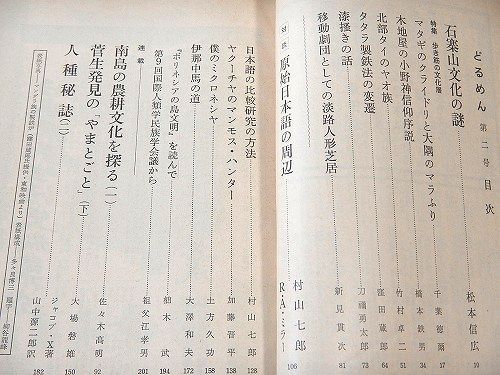 どるめん 第二号 目次
石寨山文化の謎 松本信広 10
特集 歩き筋の文化層
マタギのクライドリと大隅のマラふり 千葉徳爾 17
木地屋の小野神信仰序説 橋本鉄男 41
北部タイのヤオ族 竹村卓二 51
タタラ製鉄法の変遷 窪田蔵郎 64
漆搔きの話 刀禰勇太郎 73
移動劇団としての淡路人形芝居 新見貫次 81
対談 原始日本語の周辺 村山七郎 R・A・ミラー 106
日本語の比較研究の方法 村山七郎 128
ヤクーチャのマンモス・ハンター 加藤晋平 138
僕のミクロネシヤ 土方久功 158
伊那中馬の道 大澤和夫 172
『ポリネシアの島文明』を読んで 植木武 194
第9回国際人類学民族学会議から 祖父江孝男 201
連載
南島の農耕文化を探る(一) 佐々木高明 92
菅生発見の「やまとごと」(下) 大場磐雄 150
人種秘誌(二) ジャコブ・X著 山中源二郎訳 182